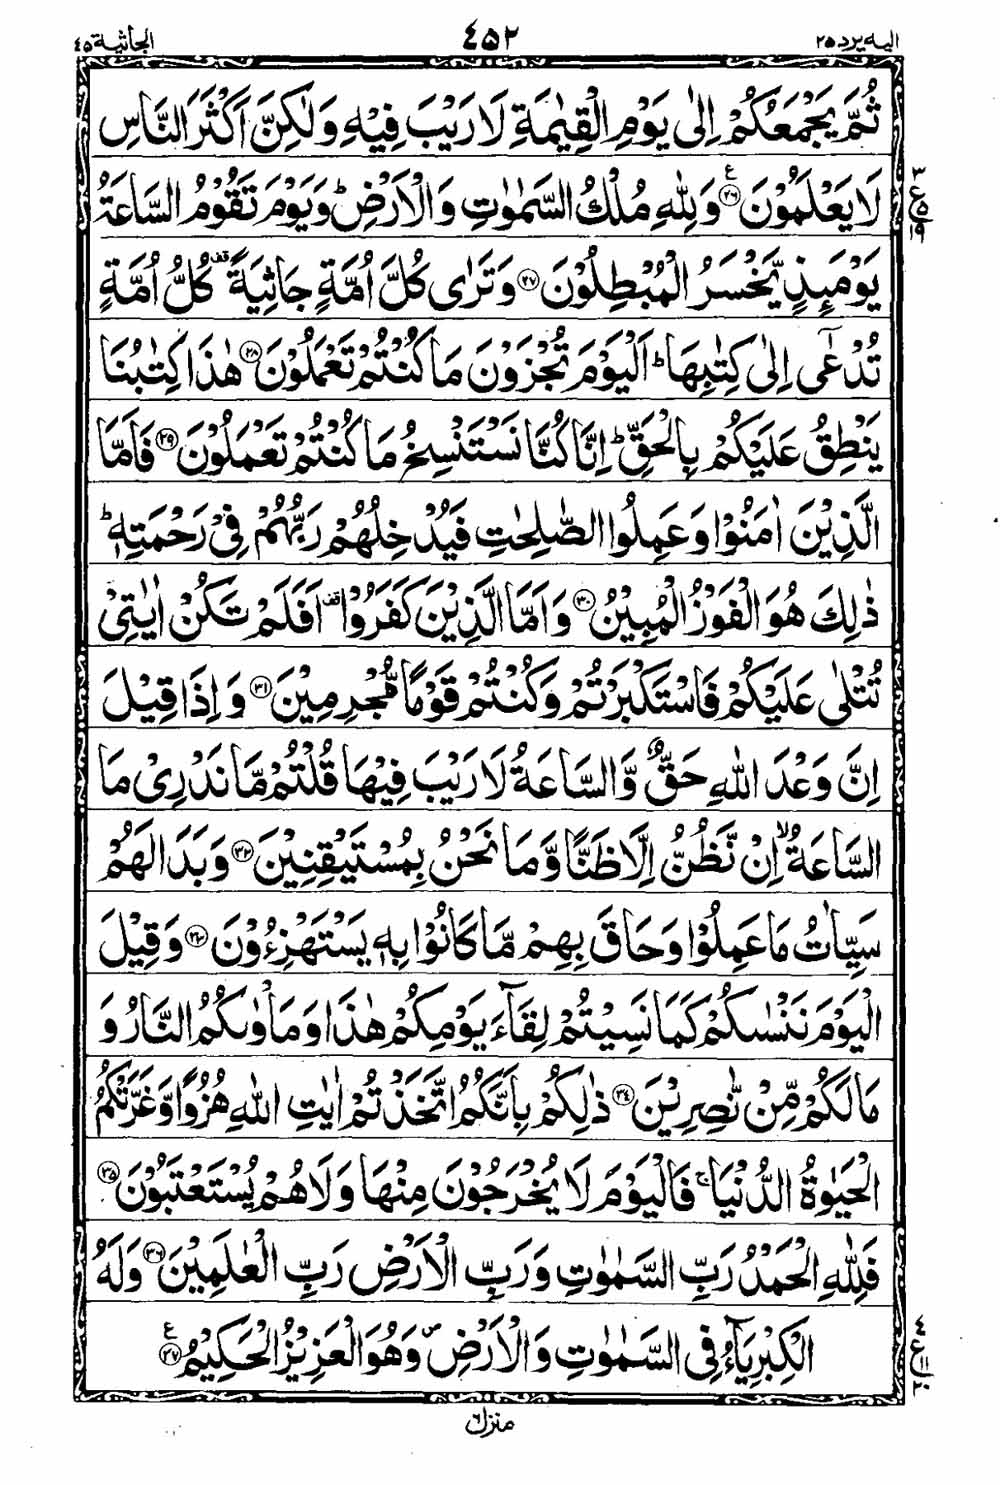 اليه يرد ٢٥ ٤٥٢ الجاثية ٤٥
ثُمَّ يَجْمَعُكُمْ اِلٰى يَوْمِ الْقِيٰمَةِ لَا رَيْبَ فِيْهِ وَلٰكِنَّ اَكْثَرَ النَّاسِ
لَا يَعْلَمُوْنَ ﴿٢٦﴾ ع وَلِلّٰهِ مُلْكُ السَّمٰوٰتِ وَالْاَرْضِ ؕ وَيَوْمَ تَقُوْمُ السَّاعَةُ
٣ ع ٥ ١٩
يَوْمَئِذٍ يَّخْسَرُ الْمُبْطِلُوْنَ ﴿٢٧﴾ وَتَرٰى كُلَّ اُمَّةٍ جَاثِيَةً قف كُلُّ اُمَّةٍ
تُدْعٰٓى اِلٰى كِتٰبِهَا ؕ اَلْيَوْمَ تُجْزَوْنَ مَا كُنْتُمْ تَعْمَلُوْنَ ﴿٢٨﴾ هٰذَا كِتٰبُنَا
يَنْطِقُ عَلَيْكُمْ بِالْحَقِّ ؕ اِنَّا كُنَّا نَسْتَنْسِخُ مَا كُنْتُمْ تَعْمَلُوْنَ ﴿٢٩﴾ فَاَمَّا
الَّذِيْنَ اٰمَنُوْا وَعَمِلُوا الصّٰلِحٰتِ فَيُدْخِلُهُمْ رَبُّهُمْ فِيْ رَحْمَتِهٖ ؕ
ذٰلِكَ هُوَ الْفَوْزُ الْمُبِيْنُ ﴿٣٠﴾ وَاَمَّا الَّذِيْنَ كَفَرُوْا قف اَفَلَمْ تَكُنْ اٰيٰتِيْ
تُتْلٰى عَلَيْكُمْ فَاسْتَكْبَرْتُمْ وَكُنْتُمْ قَوْمًا مُّجْرِمِيْنَ ﴿٣١﴾ وَاِذَا قِيْلَ
اِنَّ وَعْدَ اللّٰهِ حَقٌّ وَّالسَّاعَةُ لَا رَيْبَ فِيْهَا قُلْتُمْ مَّا نَدْرِيْ مَا
السَّاعَةُ ۙ اِنْ نَّظُنُّ اِلَّا ظَنًّا وَّمَا نَحْنُ بِمُسْتَيْقِنِيْنَ ﴿٣٢﴾ وَبَدَا لَهُمْ
سَيِّاٰتُ مَا عَمِلُوْا وَحَاقَ بِهِمْ مَّا كَانُوْا بِهٖ يَسْتَهْزِءُوْنَ ﴿٣٣﴾ وَقِيْلَ
الْيَوْمَ نَنْسٰىكُمْ كَمَا نَسِيْتُمْ لِقَآءَ يَوْمِكُمْ هٰذَا وَمَاْوٰىكُمُ النَّارُ وَ
مَا لَكُمْ مِّنْ نّٰصِرِيْنَ ﴿٣٤﴾ ذٰلِكُمْ بِاَنَّكُمُ اتَّخَذْتُمْ اٰيٰتِ اللّٰهِ هُزُوًا وَّغَرَّتْكُمُ
الْحَيٰوةُ الدُّنْيَا ۚ فَالْيَوْمَ لَا يُخْرَجُوْنَ مِنْهَا وَلَا هُمْ يُسْتَعْتَبُوْنَ ﴿٣٥﴾
فَلِلّٰهِ الْحَمْدُ رَبِّ السَّمٰوٰتِ وَرَبِّ الْاَرْضِ رَبِّ الْعٰلَمِيْنَ ﴿٣٦﴾ وَلَهُ
الْكِبْرِيَآءُ فِي السَّمٰوٰتِ وَالْاَرْضِ ۪ وَهُوَ الْعَزِيْزُ الْحَكِيْمُ ﴿٣٧﴾ ع
٤ ع ١١ ٢٠
منزل ٦